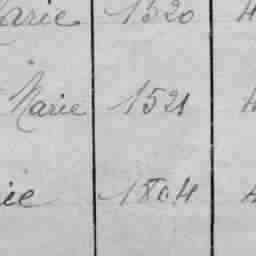 Marie 1520 4
Marie 1521 4
ie 1804 4